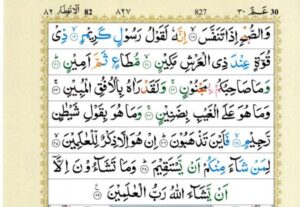 ٱلْاِنْفِطَار ٨٢ 82 ٨٢٧ 827 عَمَّ ٣٠ 30
وَالصُّبْحِ اِذَا تَنَفَّسَ ۙ اِنَّهٗ لَقَوْلُ رَسُوْلٍ كَرِيْمٍ ۙ ذِيْ
قُوَّةٍ عِنْدَ ذِي الْعَرْشِ مَكِيْنٍ ۙ مُّطَاعٍ ثَمَّ اَمِيْنٍ ؕ
وَمَا صَاحِبُكُمْ بِمَجْنُوْنٍ ۚ وَلَقَدْ رَاٰهُ بِالْاُفُقِ الْمُبِيْنِ ۚ
وَمَا هُوَ عَلَي الْغَيْبِ بِضَنِيْنٍ ۚ وَمَا هُوَ بِقَوْلِ شَيْطٰنٍ
رَّجِيْمٍ ۙ فَاَيْنَ تَذْهَبُوْنَ ؕ اِنْ هُوَ اِلَّا ذِكْرٌ لِّلْعٰلَمِيْنَ ۙ
لِمَنْ شَآءَ مِنْكُمْ اَنْ يَّسْتَقِيْمَ ؕ وَمَا تَشَآءُوْنَ اِلَّآ
اَنْ يَّشَآءَ اللّٰهُ رَبُّ الْعٰلَمِيْنَ